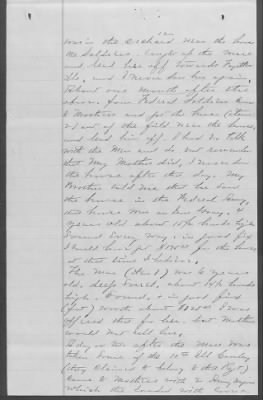 was in the orchard near the house
the Soldiers caught up the Mare
and lead her off towards Fayette
ville, and I never saw her again.
About one month after the
above four Federal Soldiers came
to Mothers and got the horse (Item
2) out of the field near the house,
and lead him off. I had no talk
with the Men and do not remember
that My Mother did, I never saw
the horse after that day. My
Brother told me that he saw
the horse in the Federal Army,
this horse was an Iron Gray, 6
years old about 15½ hands high
Sound Every way, in good fix
I could have got for the horse
at that time I believe.
The Mare (Item 1) was 6 years
old, deep Sorrel, about 14½ hands
high. Sound, & in just fine
(fix) worth about I was
offered this for her, but Mother
would not sell her.
A day or two after the Mare was
taken some of the 10th Ill Cavalry
(they claimed to belong to this Regt)
came to Mothers with 2 Army wagons
which they loaded with corn